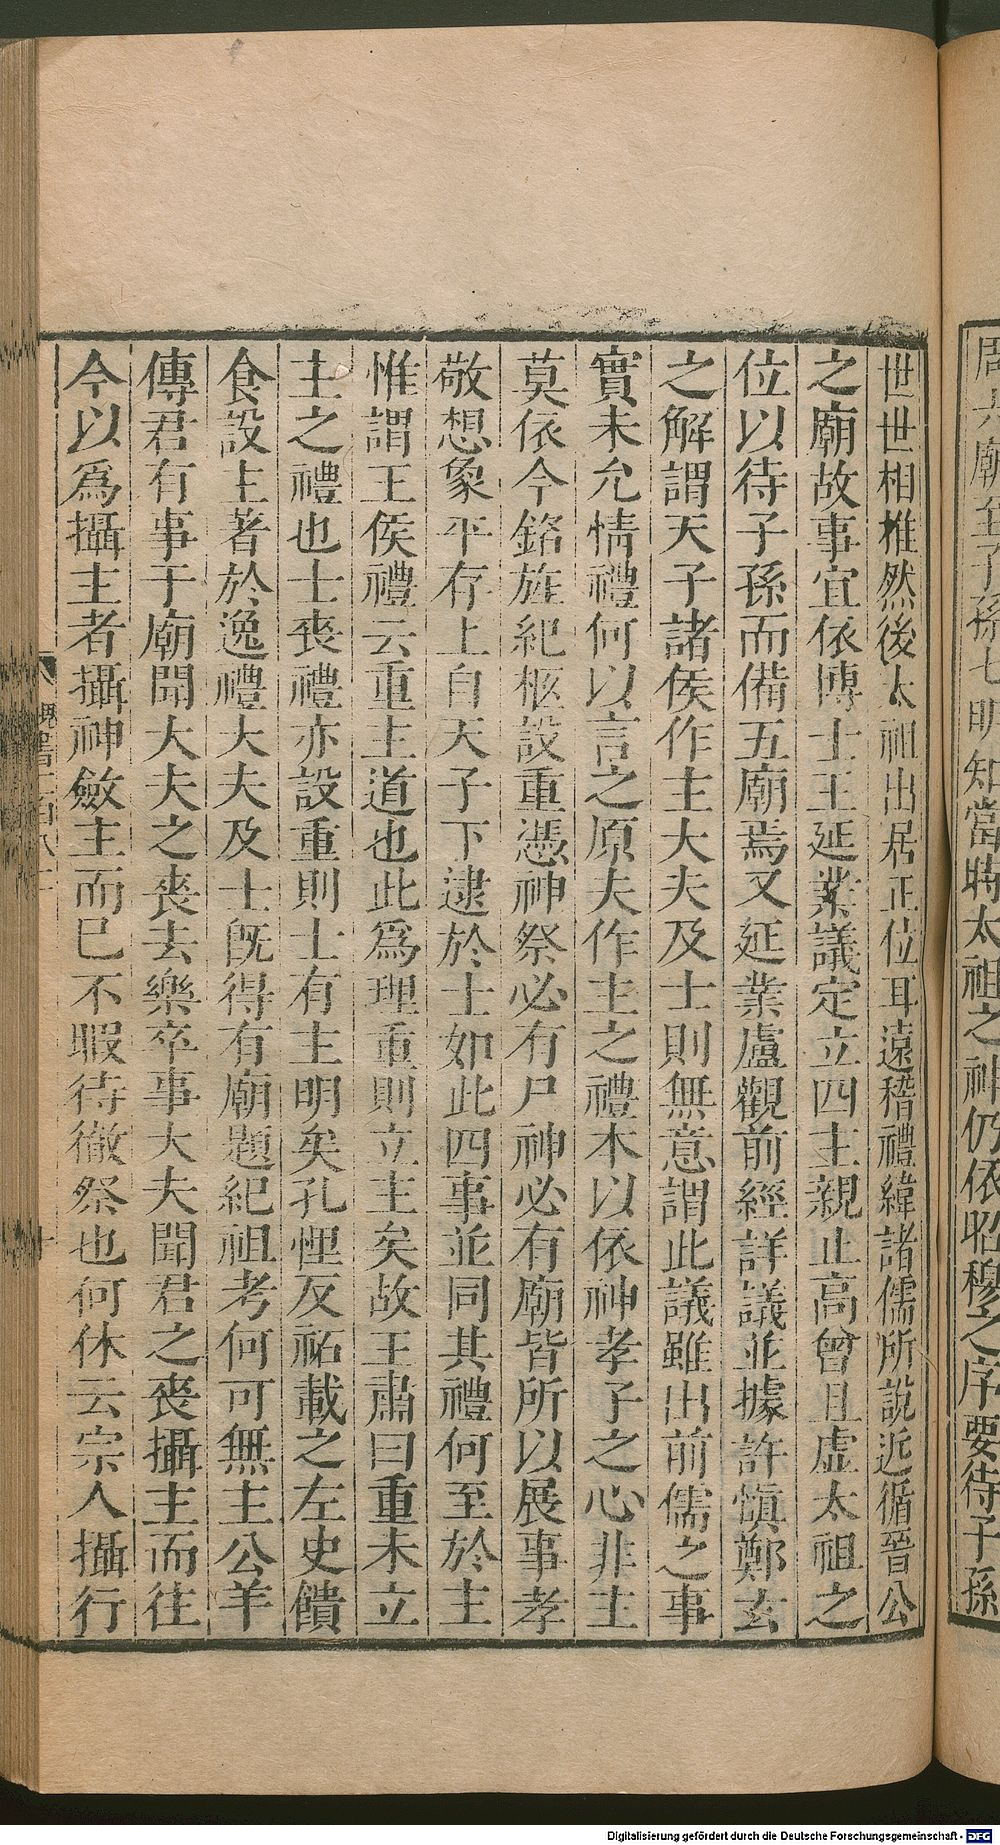 周六廟至子孫七明知當時太祖之神仍依昭穆之序要待子孫
世世相推然後太祖出居正位耳遠稽禮緯諸儒所說近循晉公
之廟故事宜依博士王延業議定立四主親止高曾且虛太祖之
位以待子孫而備五廟焉又延業盧觀前經詳議並據許慎鄭玄
之解謂天子諸侯作主大夫及士則無意謂此議雖出前儒之事
實未允情禮何以言之原夫作主之禮本以依神孝子之心非主
莫依今銘旌紀柩設重憑神祭必有尸神必有廟皆所以展事孝
敬想象平存上自天子下逮於士如此四事並同其禮何至於主
惟謂王侯禮云重主道也此為理重則立主矣故王肅曰重未立
主之禮也士喪禮亦設重則士有主明矣孔悝反祏載之左史饋
食設主著於逸禮大夫及士既得有廟題紀祖考何可無主公羊
傳君有事于廟聞大夫之喪去樂卒事大夫聞君之喪攝主而往
今以為攝主者攝神斂主而已不暇待徹祭也何休云宗人攝行
Digitalisierung gefördert durch die Deutsche Forschungsgemeinschaft - DFG